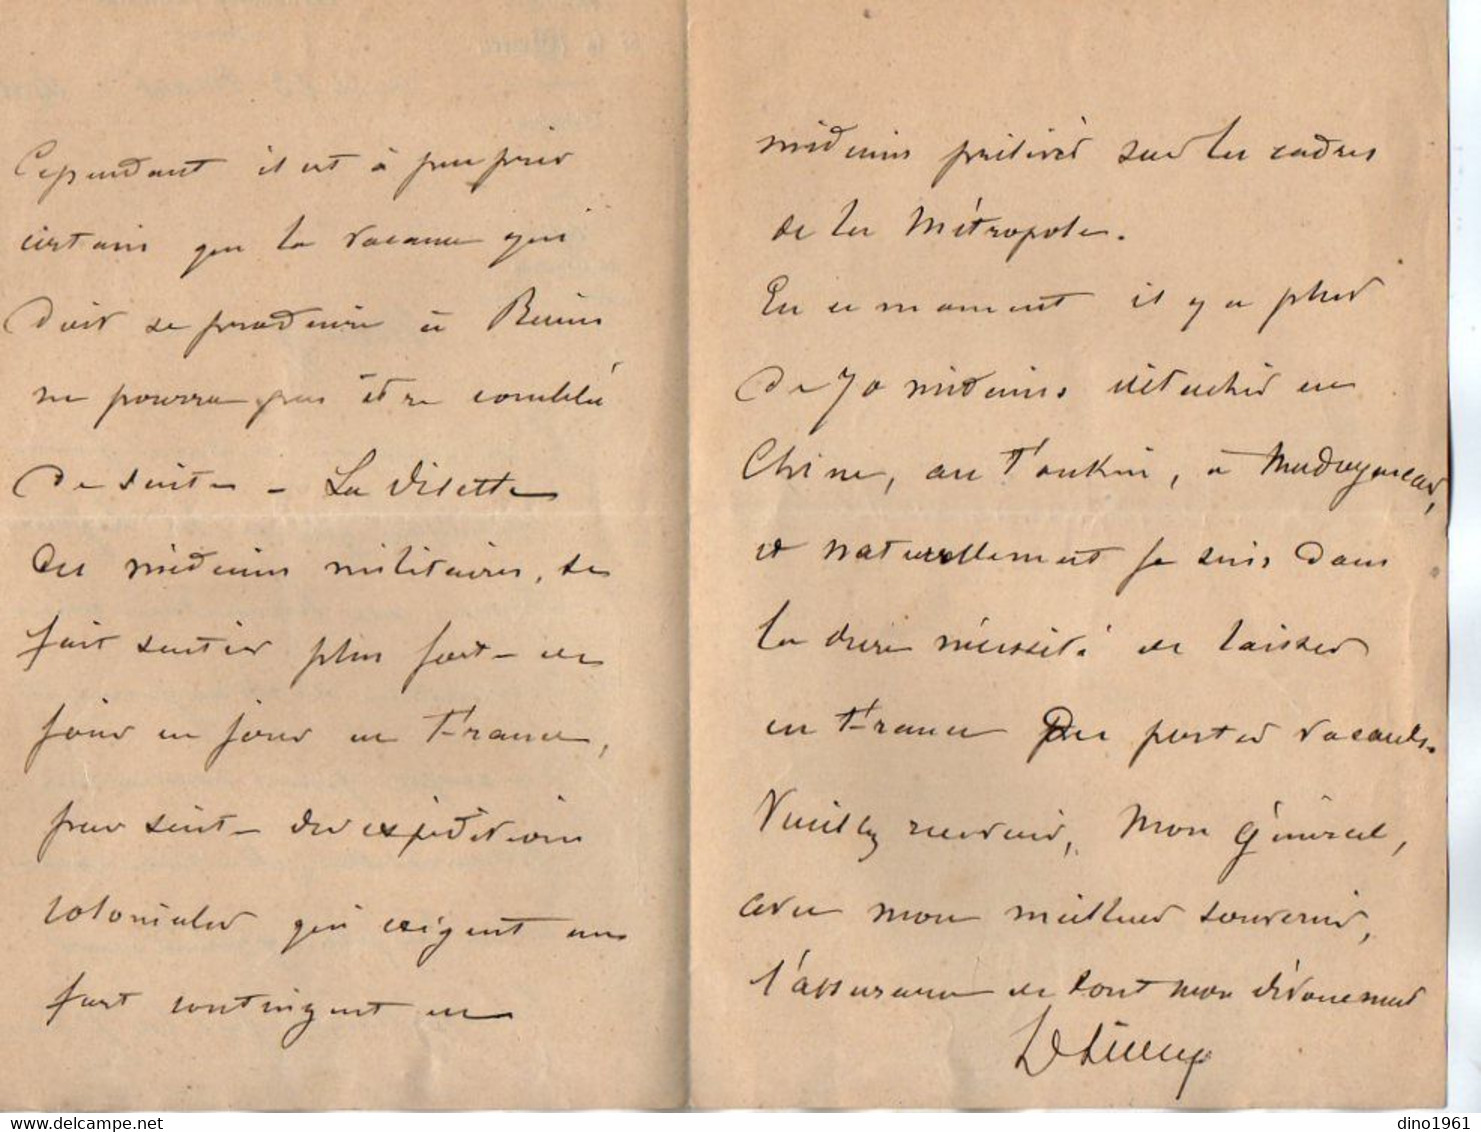 Cependant il est à peu près
certain que la vacance qui
doit se produire à Reims
ne pourra pas être comblée
de suite - La disette
des médecins militaires, se
fait sentir plus fort de
jour en jour en France,
par suite des expéditions
coloniales qui exigent un
fort contingent de
médecins prélevés sur les cadres
de la Métropole.
En ce moment il y a plus
de 70 médecins détachés en
Chine, au Tonkin, à Madagascar,
et naturellement je suis dans
la dure nécessité de laisser
en France des postes vacants.
Veuillez recevoir, Mon Général,
avec mon meilleur souvenir,
l'assurance de tout mon dévouement
dino1961